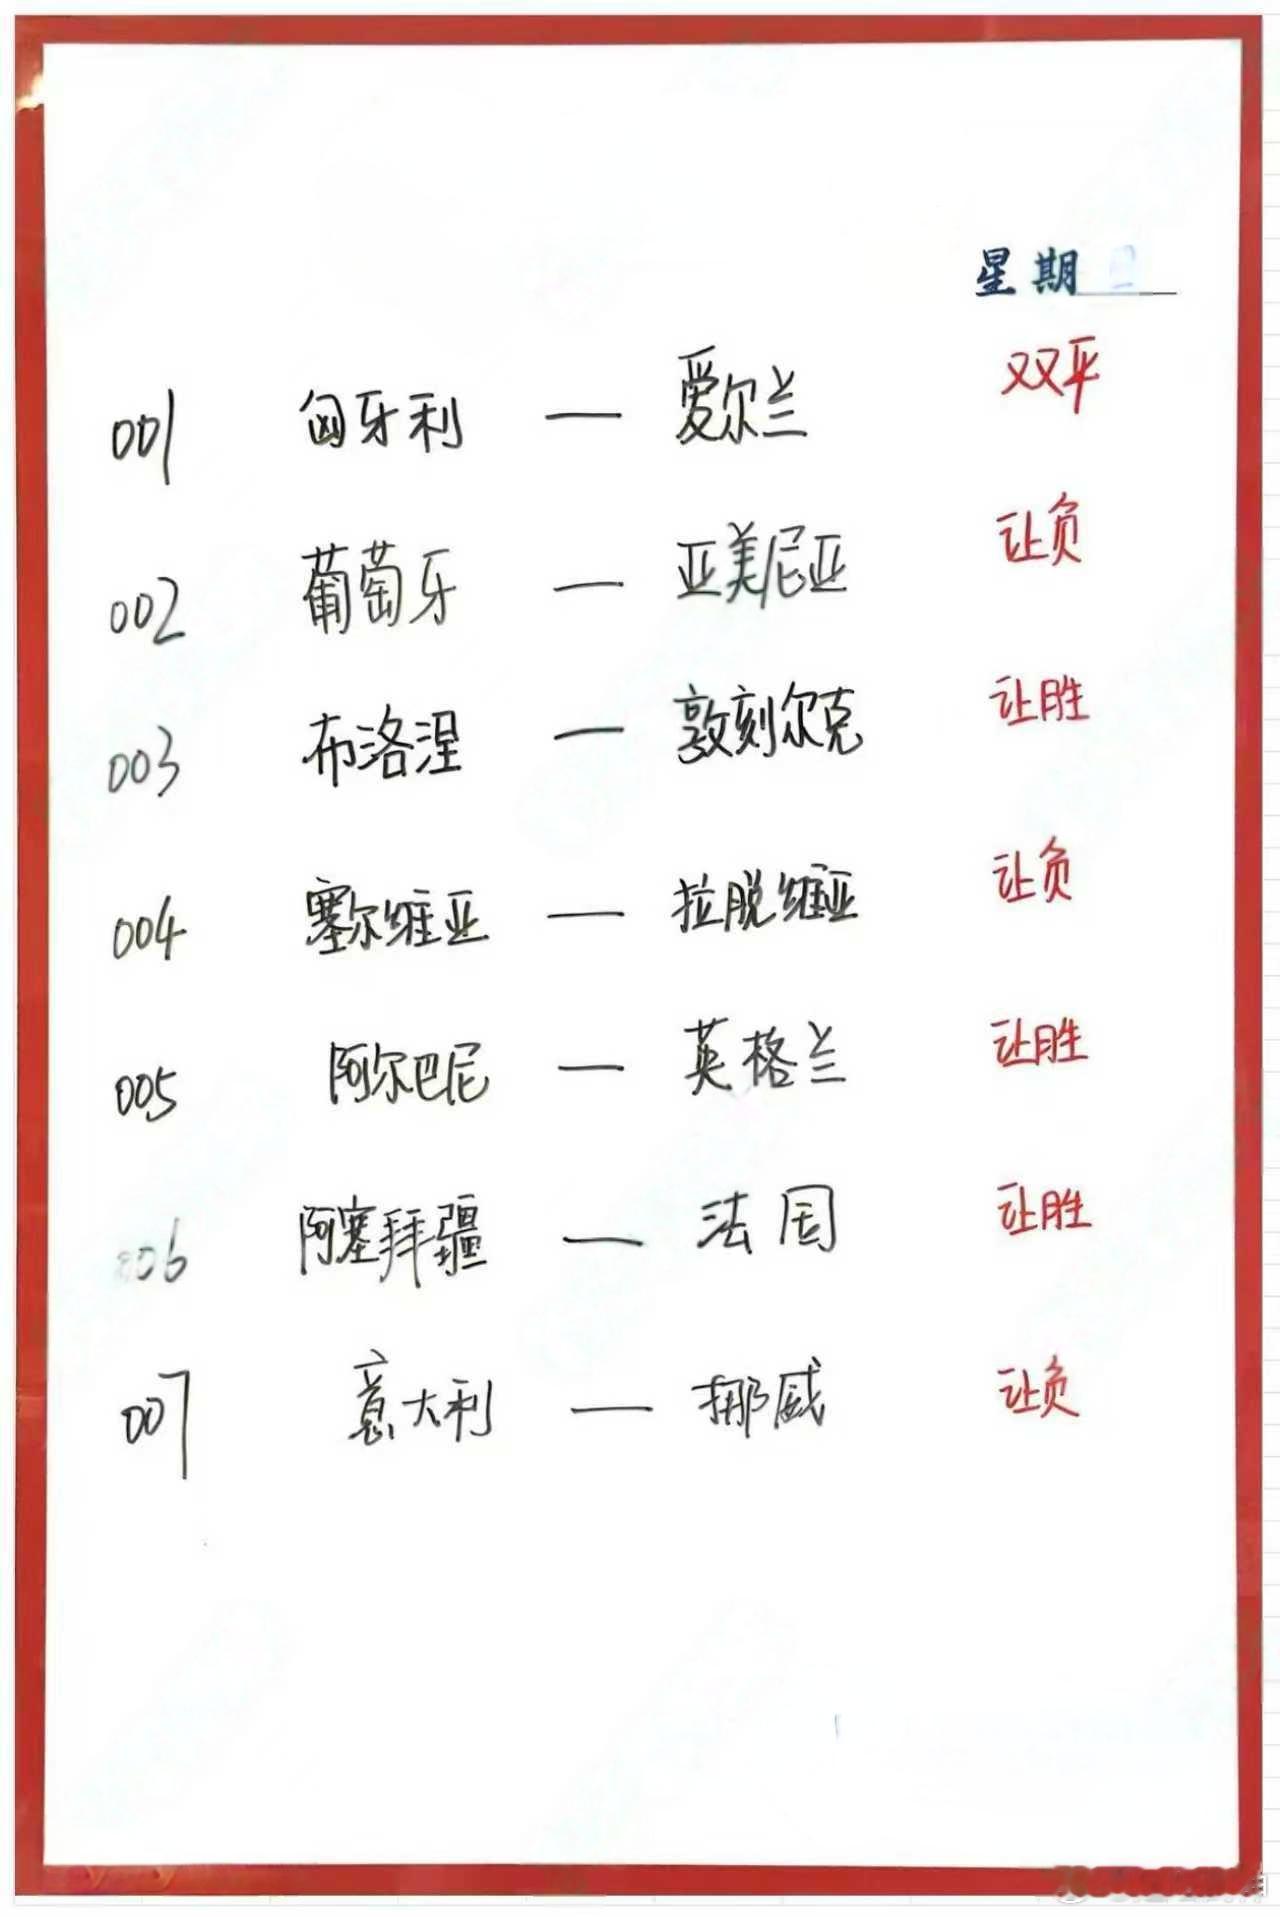 星期
001 匈牙利 — 爱尔兰 双平
002 葡萄牙 — 亚美尼亚 让负
003 布洛涅 — 敦刻尔克 让胜
004 塞尔维亚 — 拉脱维亚 让负
005 阿尔巴尼 — 英格兰 让胜
006 阿塞拜疆 — 法国 让胜
007 意大利 — 挪威 让负